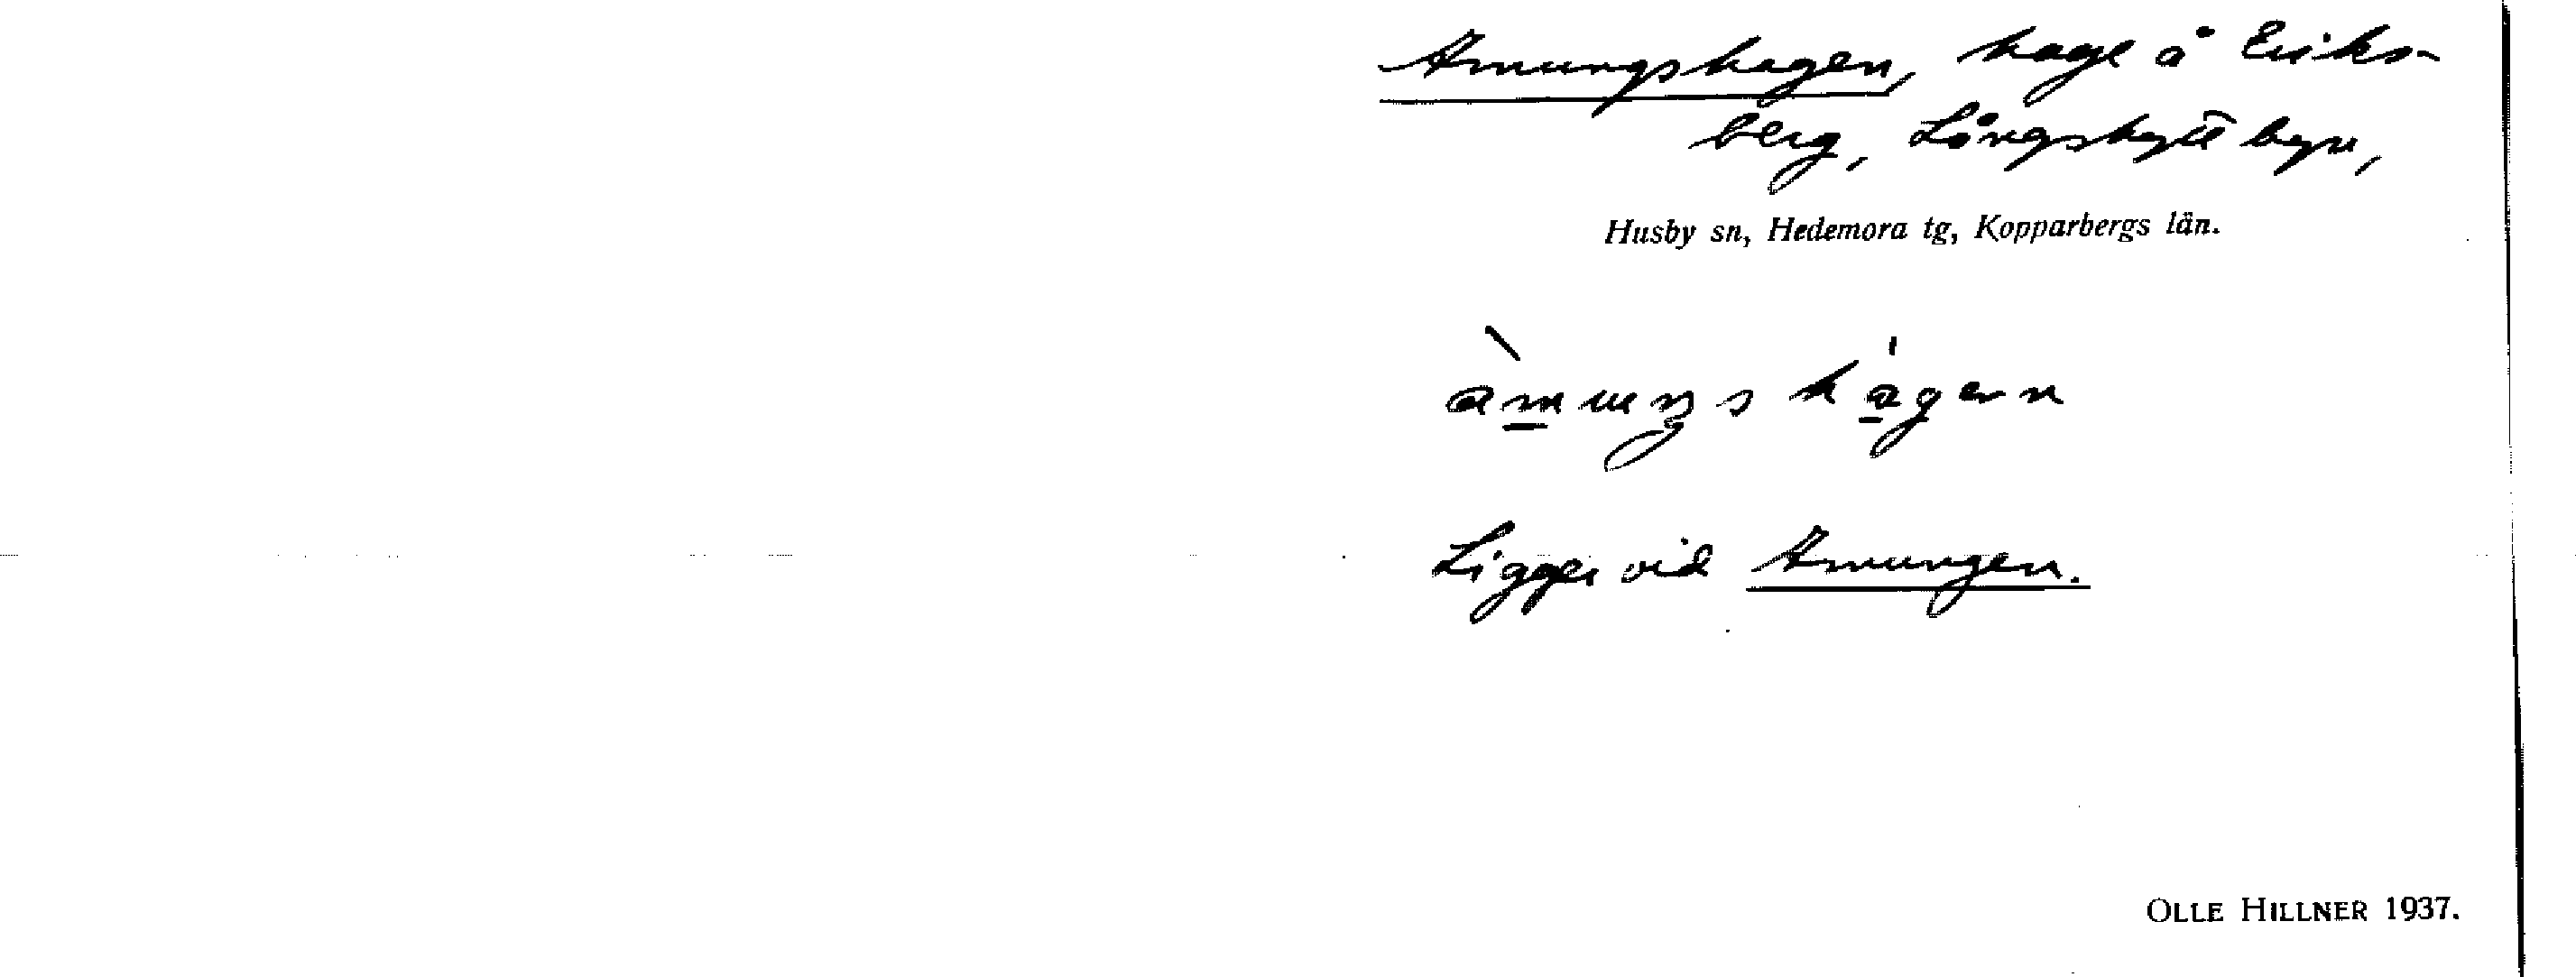 Amungshagen, hage å Eriks-
berg, Långshytte byn,
Husby sn, Hedemora tg, Kopparbergs län.
Ligger vid Amungen.
OLLE HILLNER 1937.